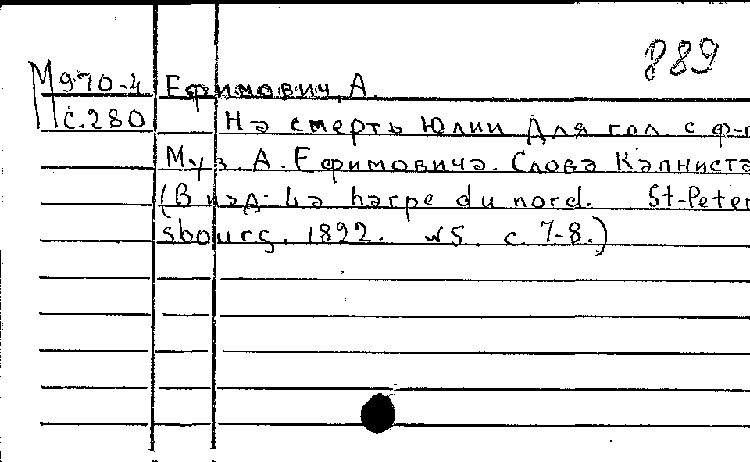 889
М970-4 Ефимович, А.
с.280 На смерть Юлии Для гол. с ф-п
Муз. А. Ефимовича. Слова Капниста
(В изд: La harpe du nord. St-Peter
sbourg. 1822. №5. с. 7-8.)